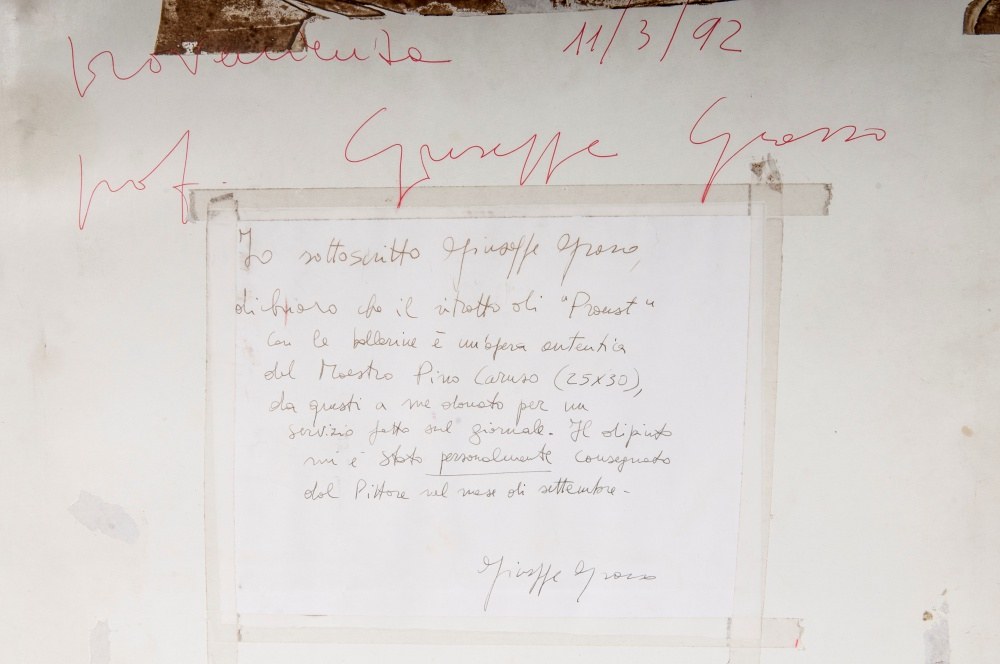 provenienza 11/3/92
prof Giuseppe Grosso
Io sottoscritto Giuseppe Grosso,
dichiaro che il ritratto di "Proust"
con le ballerine è un'opera autentica
del Maestro Pino Caruso (25x30),
da questi a me donato per un
servizio fatto sul giornale. Il dipinto
mi è stato personalmente consegnato
dal Pittore nel mese di settembre.
Giuseppe Grosso